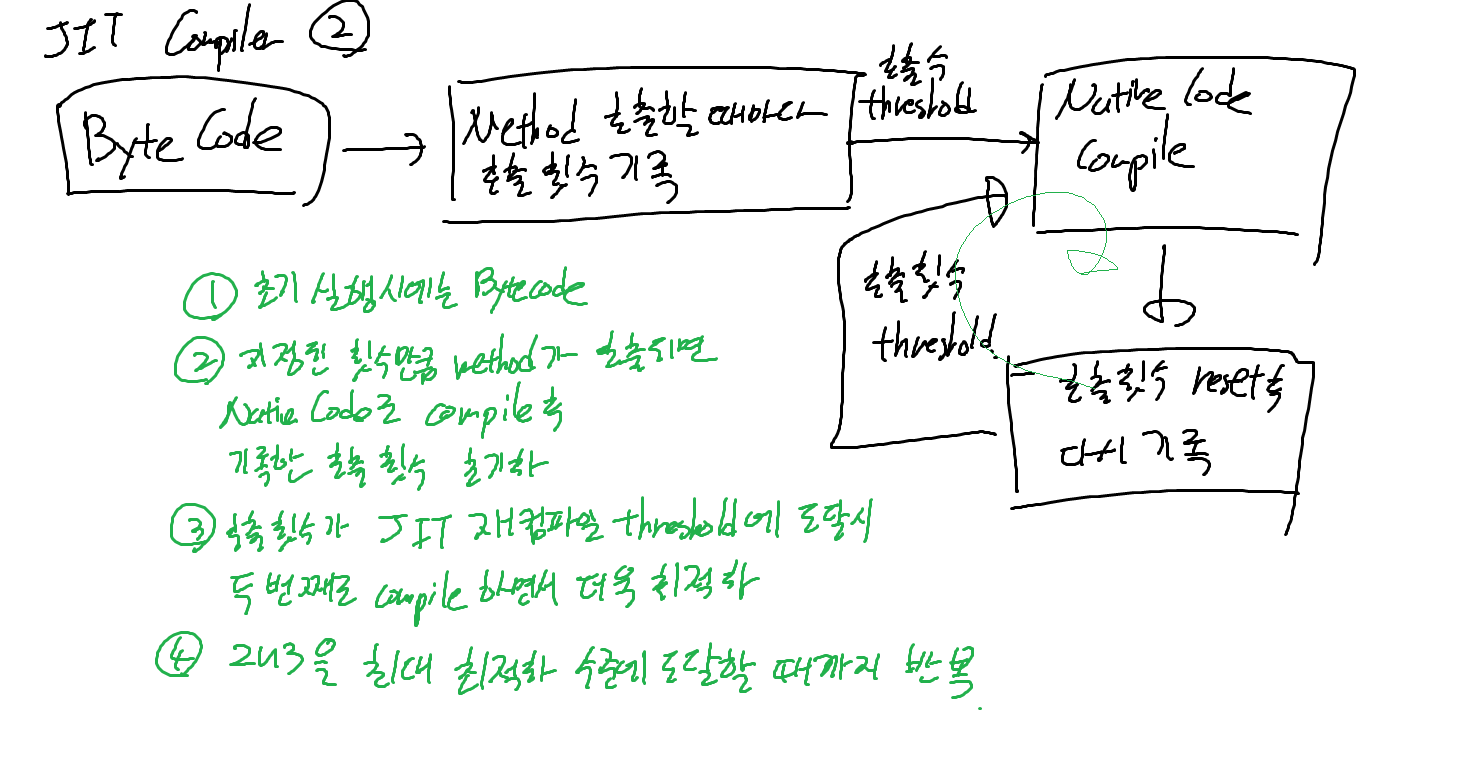 JIT Compiler ②
Byte Code
Method 호출할 때마다
호출 횟수 기록
호출수
threshold
Native Code
Compile
호출횟수
threshold
호출횟수 reset후
다시 기록
① 초기 실행시에는 Bytecode
② 지정된 횟수만큼 method가 호출되면
Native Code로 compile후
기록한 호출 횟수 초기화
③ 호출횟수가 JIT 재컴파일 threshold에 도달시
두번째로 compile 하면서 더욱 최적화
④ 2~3을 최대 최적화 수준에 도달할 때까지 반복.